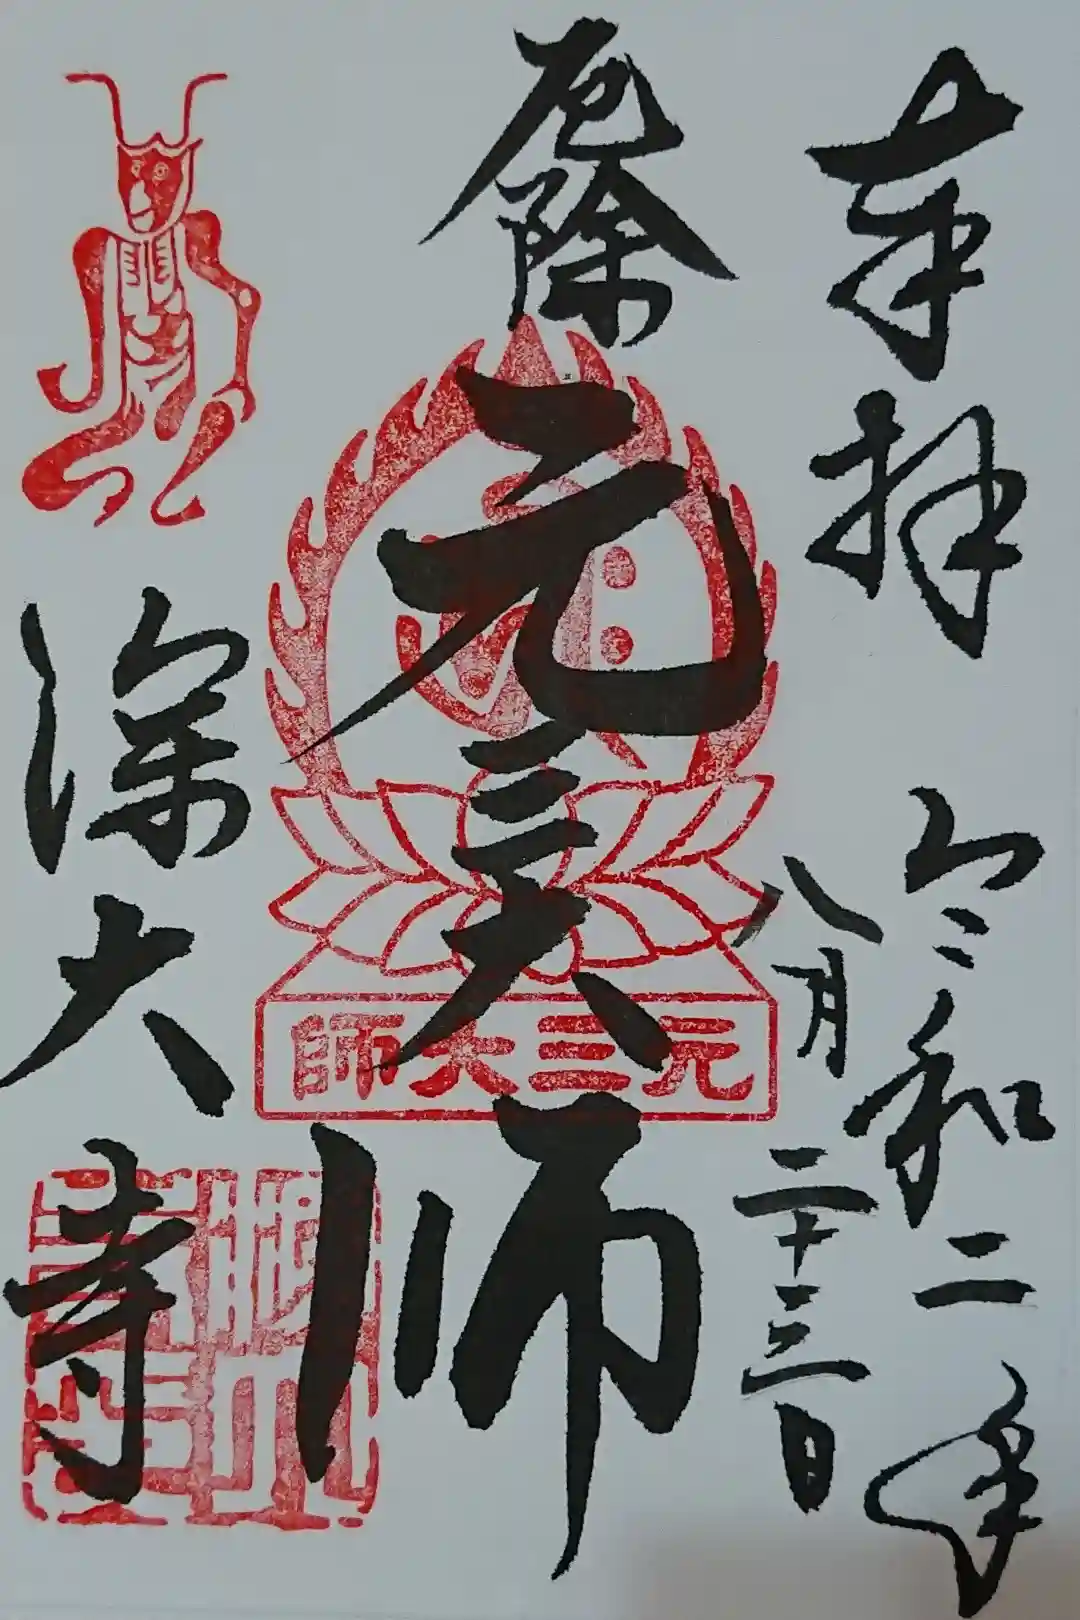 奉拝
令和二年
八月
二十三日
厄除
元三大師
元三大師
深大寺